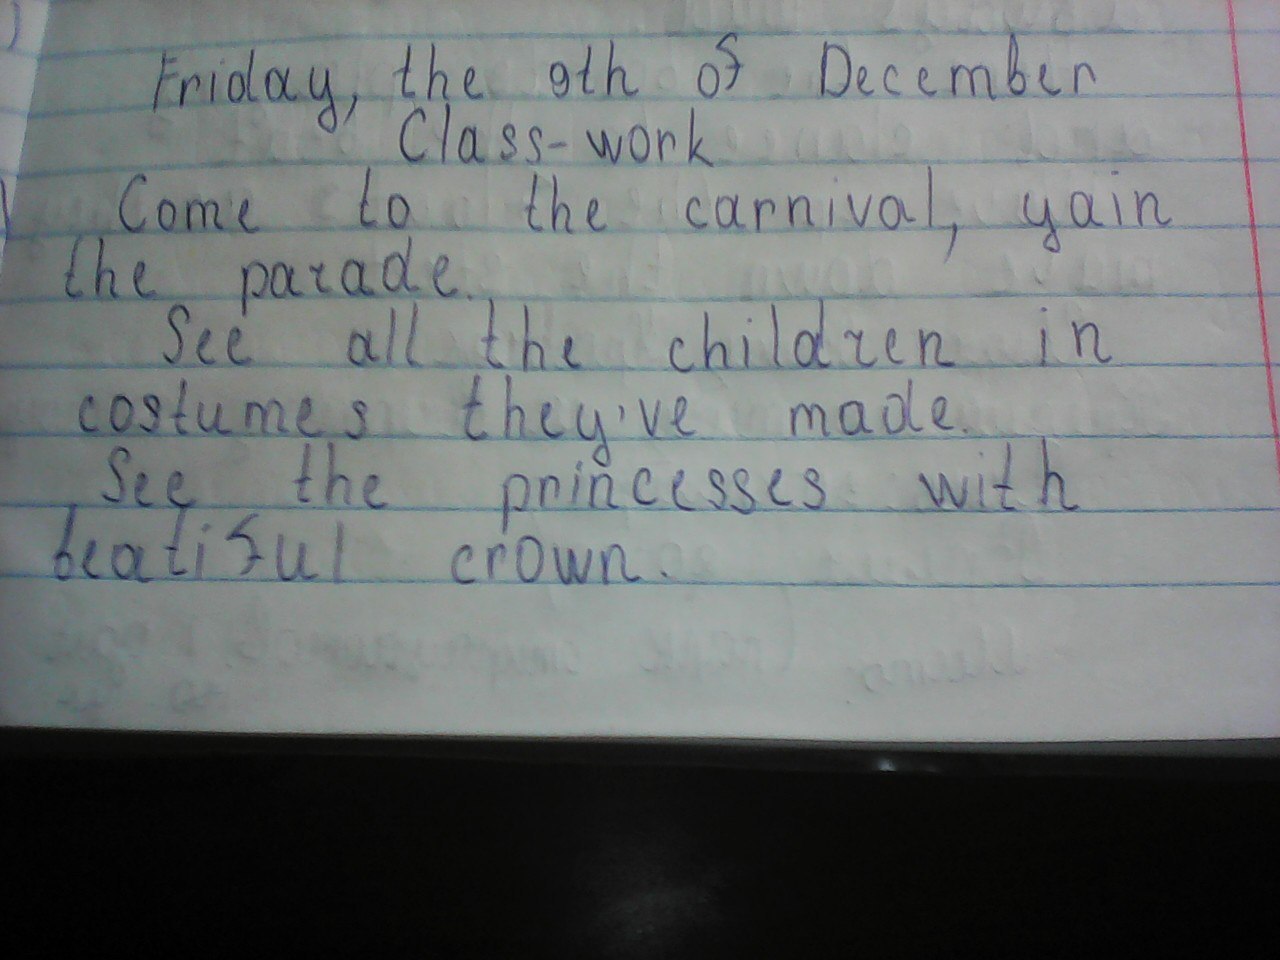 Friday, the 9th of December
Class-work
Come to the carnival, yain
the parade.
See all the children in
costumes they've made.
See the princesses with
beatiful crown.